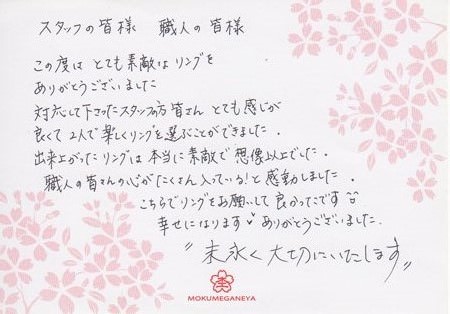 スタッフの皆様 職人の皆様
この度は とても素敵な リングを
ありがとうございました
対応して下さったスタッフの方 皆さん とても感じが
良くて 2人で楽しくリングを選ぶことができました.
出来上がった リングは 本当に素敵で 想像以上でした.
職人の皆さんの心がたくさん入っている!と感動しました.
こちらでリングをお願いして良かったです
幸せになります♥ありがとうございました.
"末永く大切にいたします"
杢
MOKUMEGANEYA